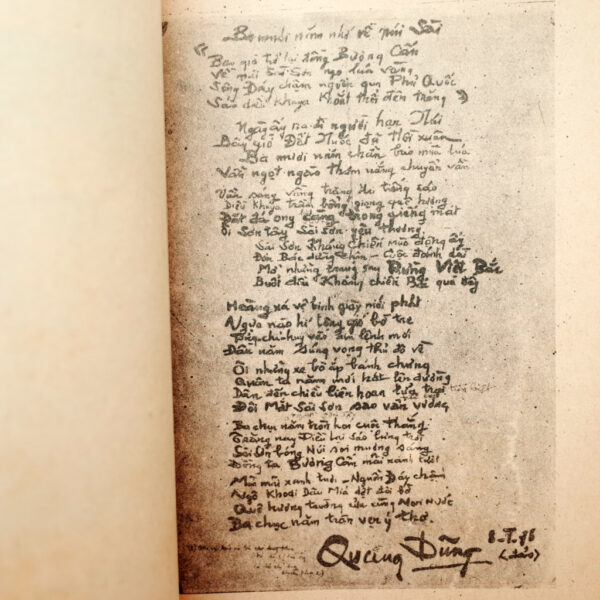 Ba mươi năm nhớ về núi Sài
"Bao giờ trở lại đồng Bương Cấn
Về núi Sài Sơn ngó lúa vàng
Sông Đáy chậm nguồn qua Phủ Quốc
Sáo diều khuya khoắt thổi đêm trăng"
Ngày ấy ra đi người hạn
Bây giờ Đất Nước đã hồi xuân
Ba mươi năm chẵn bao mùa lúa
Vẫn ngọt ngào thơm nắng chuyển vần
Vẫn sáng vầng trăng tiếng sáo
Diều khuya trầm bổng giọng quê hương
Đất đá ong đọng trong giếng mát
Ôi Sơn Tây Sài Sơn yêu thương
Sài Sơn Kháng Chiến mùa đông ấy
Đón Bác dừng chân - Cuộc đánh dài
Mở những trang sau Rừng Việt Bắc
Buổi đầu Kháng chiến Bác qua đây
Hoàng xá vệ binh giầy mới phát
Ngựa nào hí lộng gió bờ tre
chỉ huy lệnh mới
Đầu năm súng vọng thủ đô về
Ôi những xe bò ắp bánh chưng
Quân ta năm mới hát lên đường
Dân đến chiều liên hoan lửa trại
Đôi Mắt Sài Sơn sao vấn vương
Ba chục năm tròn hơi cuộc thắng
Trăng nay Diều lại sáo lưng trời
Sài Sơn bóng Núi soi mương sáng
Đồng ta Bương Cấn mãi xanh tươi
Mãi mãi xanh tươi - Nguồn Đáy chậm
Ngô Khoai Dâu Mía dọc đôi bờ
Quê hương trường cửu cùng Non Nước
Ba chục năm tròn vẹn ý thơ.
Quang Dũng